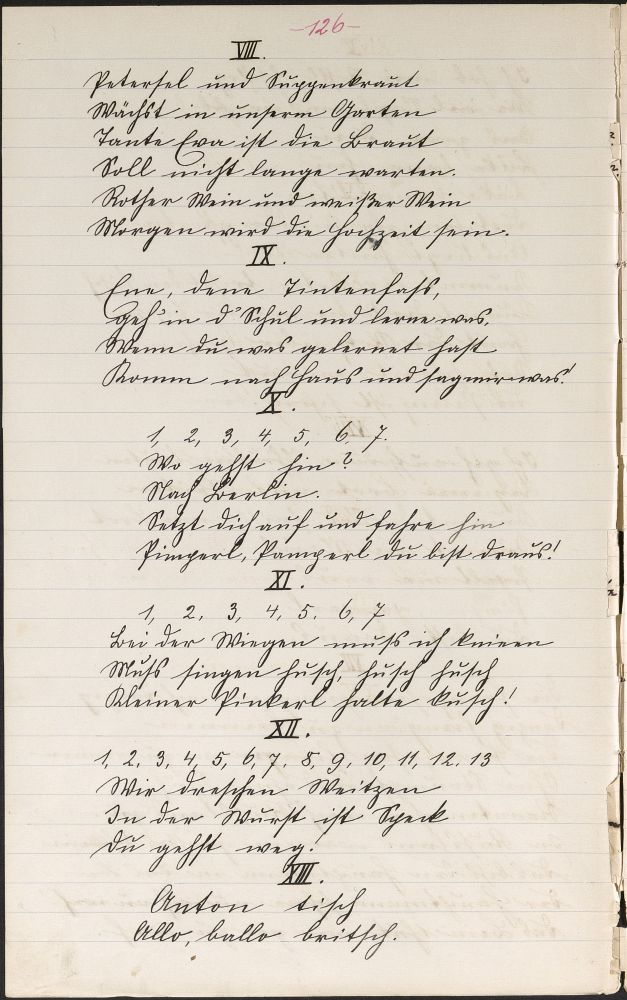 -126-
VIII.
Petersel und Suppenkraut
Wächst in unserm Garten
Tante Eva ist die Braut
Soll nicht lange warten.
Rother Wein und weißer Wein
Morgen wird die Hochzeit sein.
IX.
Ene, dene Tintenfass,
geh' in d' Schul und lerne was.
Wenn du was gelernet hast
Komm nach Haus und sag mir was!
X.
1, 2, 3, 4, 5, 6, 7.
Wo gehst hin?
Nach Berlin.
Setzt dich auf und fahre hin
Pimperl, Pamperl du bist draus!
XI.
1, 2, 3, 4, 5, 6, 7
Bei der Wiegen muss ich knieen
Muss singen husch, husch husch
Kleiner Pinkerl halte kusch!
XII.
1, 2, 3, 4, 5, 6, 7, 8, 9, 10, 11, 12, 13
Wir dreschen Weitzen
In der Wurst ist Speck
du gehst weg!
XIII.
Anton tisch
Allo, ballo britsch.